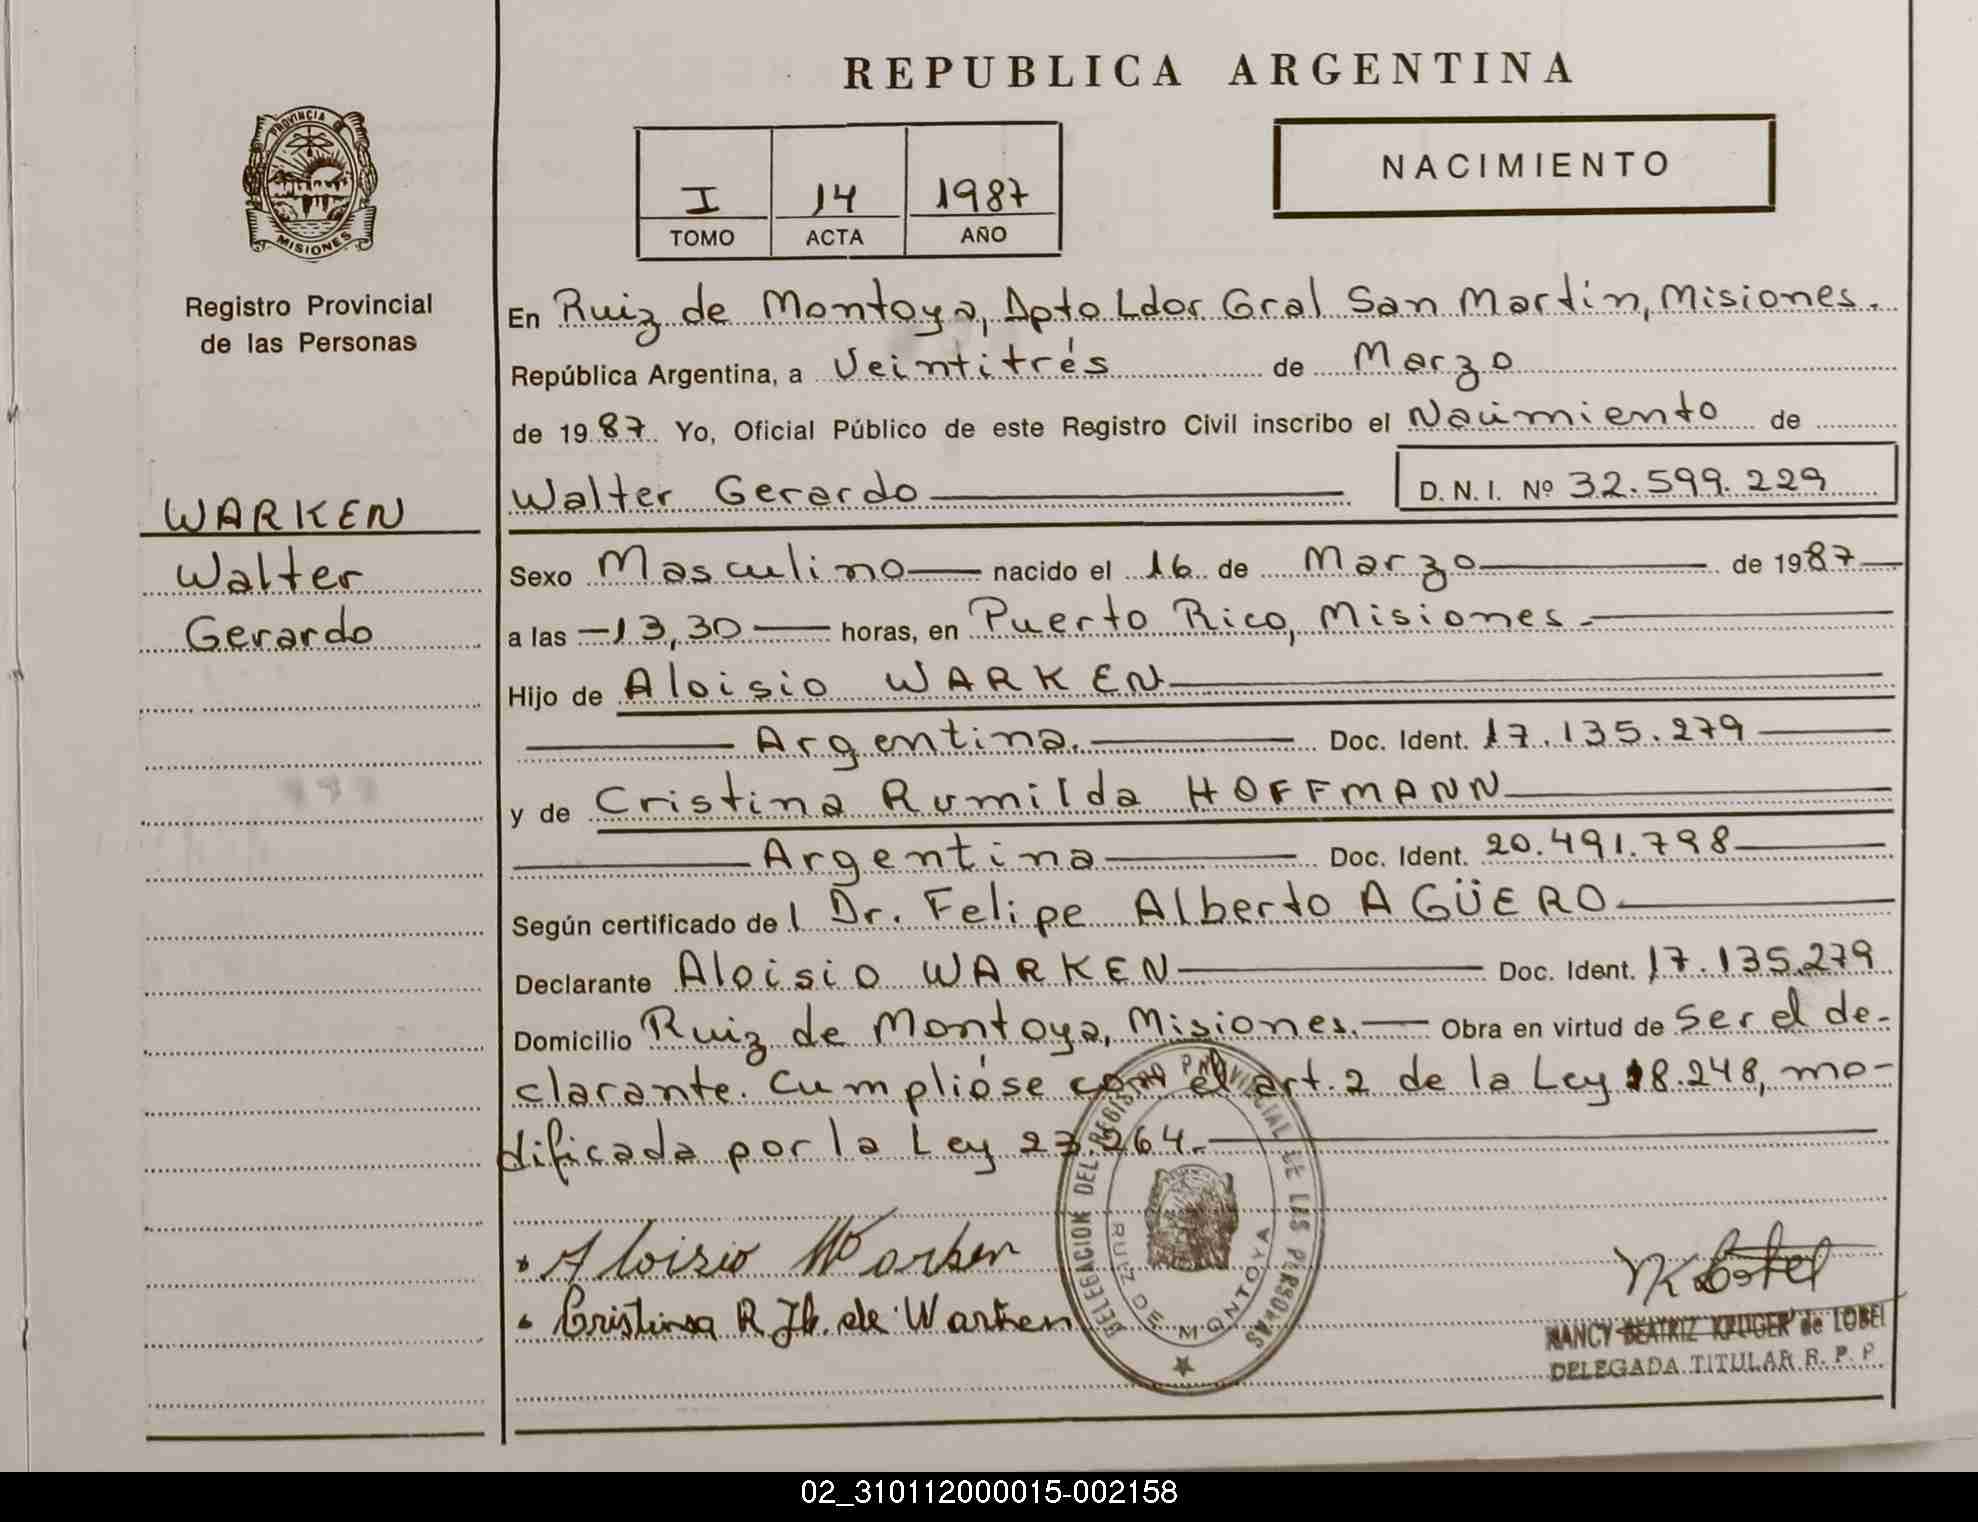 REPUBLICA ARGENTINA
PROVINCIA DE
MISIONES
Registro Provincial
de las Personas
I 14 1987
TOMO ACTA AÑO
NACIMIENTO
WARKEN
Walter
Gerardo
En Ruiz de Montoya, Dpto Ldor Gral San Martín, Misiones.
República Argentina, a Veintitrés de Marzo
de 1987 Yo, Oficial Público de este Registro Civil inscribo el Nacimiento de
Walter Gerardo D. N. I. Nº 32.599.229
Sexo Masculino nacido el 16 de Marzo de 1987
a las 13,30 horas, en Puerto Rico, Misiones.
Hijo de Aloisio WARKEN
Argentina. Doc. Ident. 17.135.279
y de Cristina Rumilda HOFFMANN
Argentina Doc. Ident. 20.491.798
Según certificado del Dr. Felipe Alberto AGÜERO
Declarante Aloisio WARKEN Doc. Ident. 17.135.279
Domicilio Ruiz de Montoya, Misiones. Obra en virtud de ser el de-
clarante. Cumplióse con el art. 2 de la Ley 18.248, mo-
dificada por la Ley 23.264.
DELEGACION DEL REGISTRO PROVINCIAL DE LAS PERSONAS
RUIZ DE MONTOYA
Aloisio Warken
Cristina R H. de Warken
NANCY BEATRIZ KRUGER de LOBEL
DELEGADA TITULAR R. P. P.
02_310112000015-002158